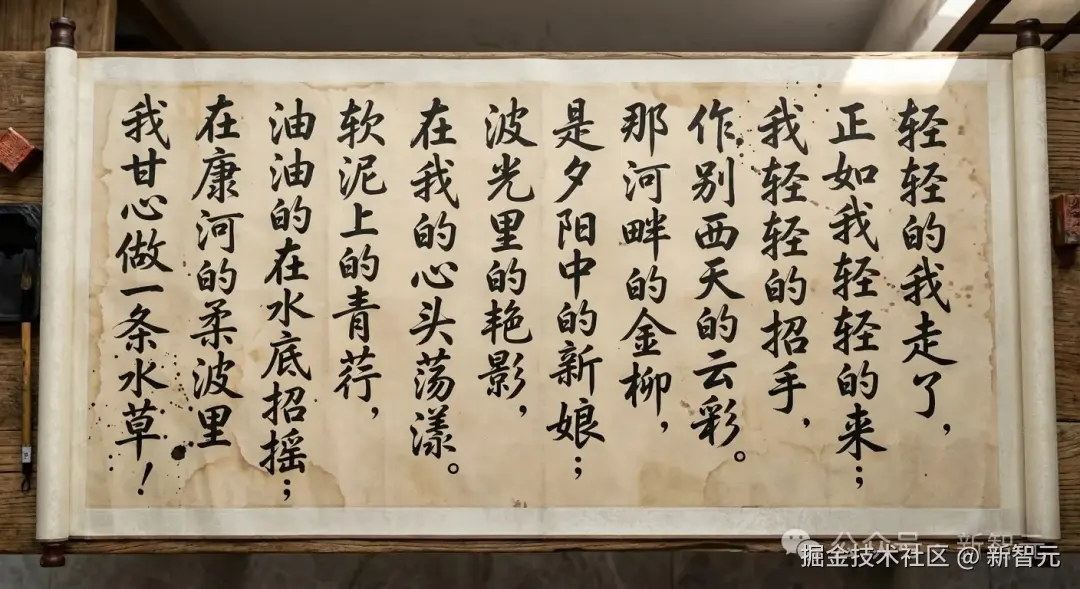 轻轻的我走了，
正如我轻轻的来；
我轻轻的招手，
作别西天的云彩。
那河畔的金柳，
是夕阳中的新娘；
波光里的艳影，
在我的心头荡漾。
软泥上的青荇，
油油的在水底招摇；
在康河的柔波里
我甘心做一条水草！
公众号 新智元
掘金技术社区 @ 新智元